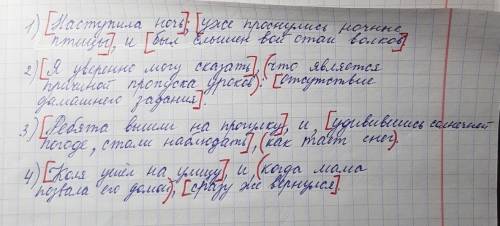 1) [Наступила ночь], [уже проснулись ночные
птицы], и [был слышен вой стаи волков].
2) [Я уверенно могу сказать], (что является
причиной пропуска уроков): [отсутствие
домашнего задания].
3) [Ребята вышли на прогулку], и, [удивившись солнечной
погоде, стали наблюдать], (как тает снег).
4) [Коля ушёл на улицу], и (когда мама
позвала его домой), [сразу же вернулся].